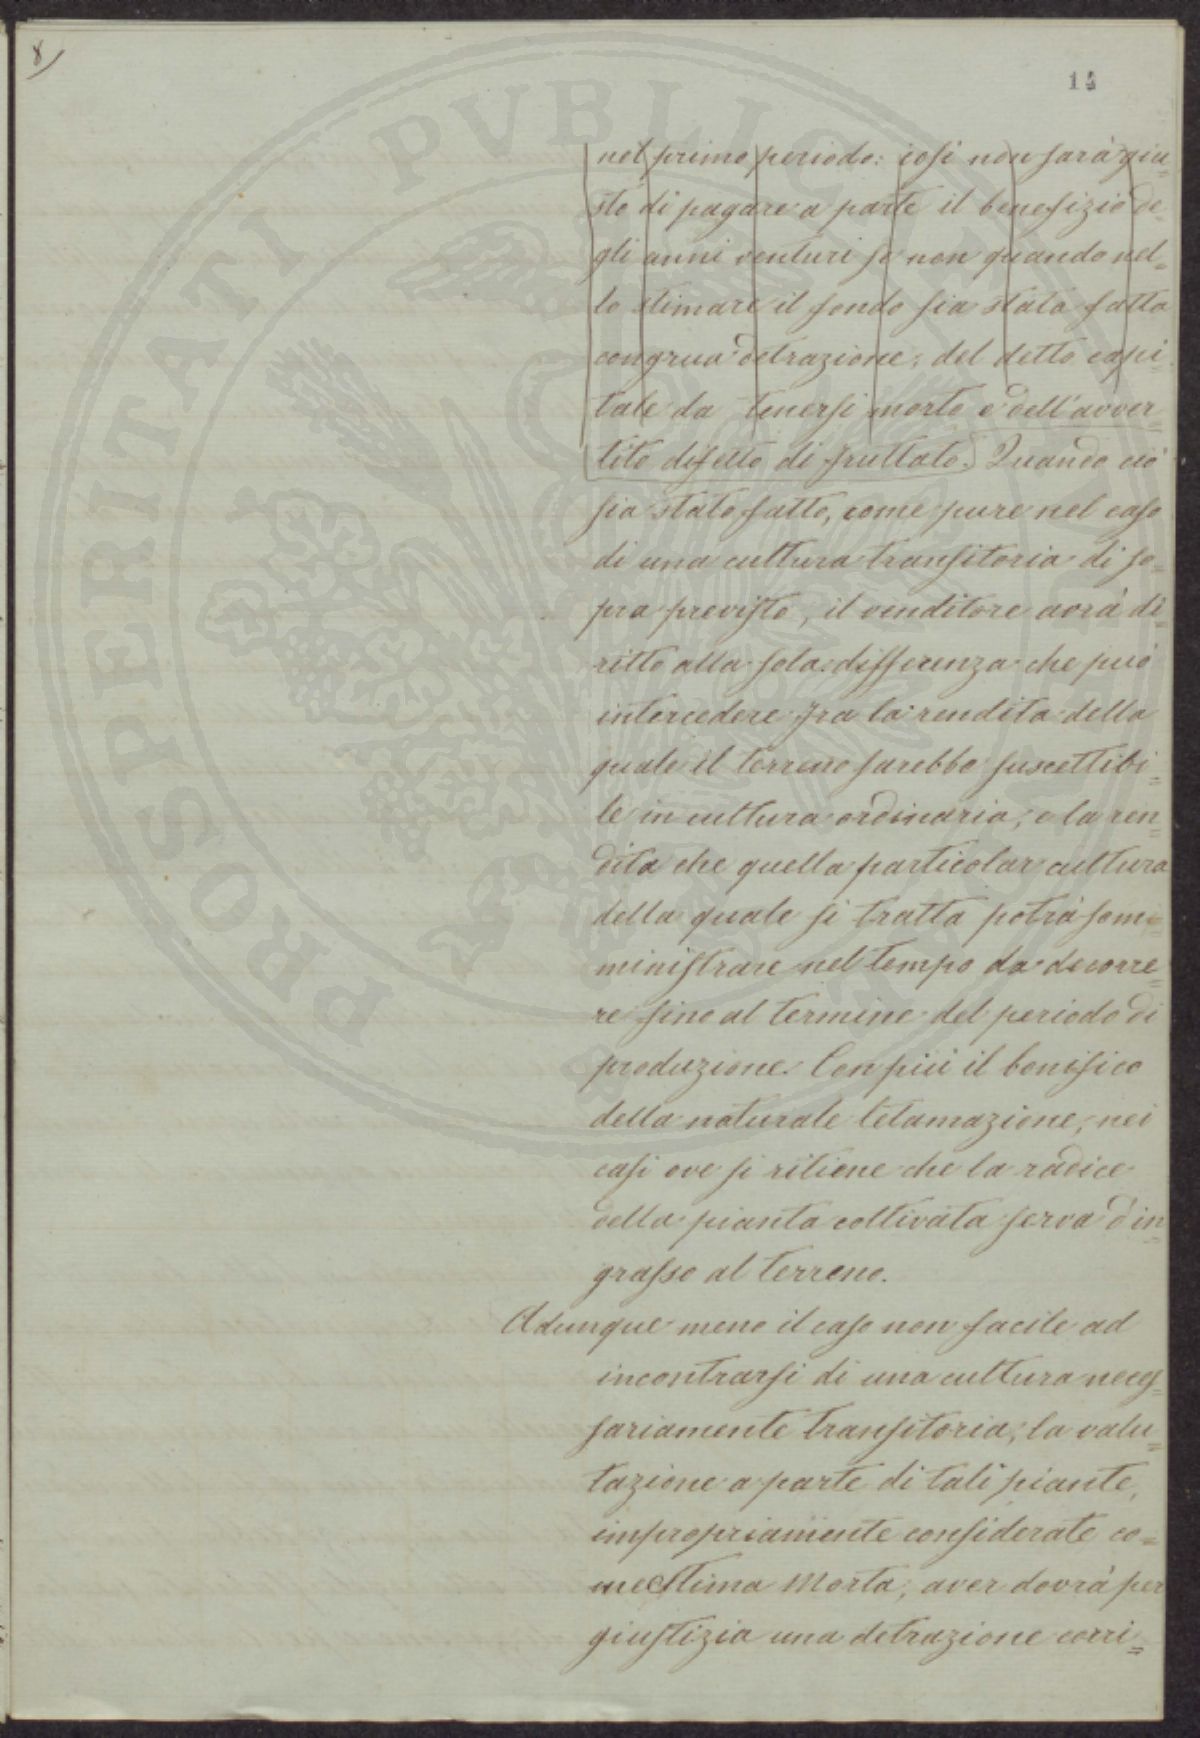 8/
14
nel primo periodo: così non sarà giu=
sto di pagare a parte il benefizio de=
gli anni venturi se non quando nel=
lo stimare il fondo sia stata fatta
congrua detrazione, del detto capi=
tale da tenersi morto e dell'avver=
tito difetto di fruttato. Quando ciò
sia stato fatto, come pure nel caso
di una cultura transitoria di so=
pra previsto, il venditore avrà di=
ritto alla sola differenza che può
intercedere fra la rendita della
quale il terreno sarebbe suscettibi=
le in cultura ordinaria, e la ren=
dita che quella particolar cultura
della quale si tratta potrà som=
ministrare nel tempo da decorre=
re fino al termine del periodo di
produzione. Con più il bonifico
della naturale letamazione, nei
casi ove si ritiene che la radice
della pianta coltivata serva d'in=
grasso al terreno.
Adunque meno il caso non facile ad
incontrarsi di una cultura neces=
sariamente transitoria, la valu=
tazione a parte di tali piante,
impropriamente considerate co=
me Stima Morta, aver dovrà per
giustizia una detrazione corri=
PROSPERITATI PVBLICAE AVGENDAE